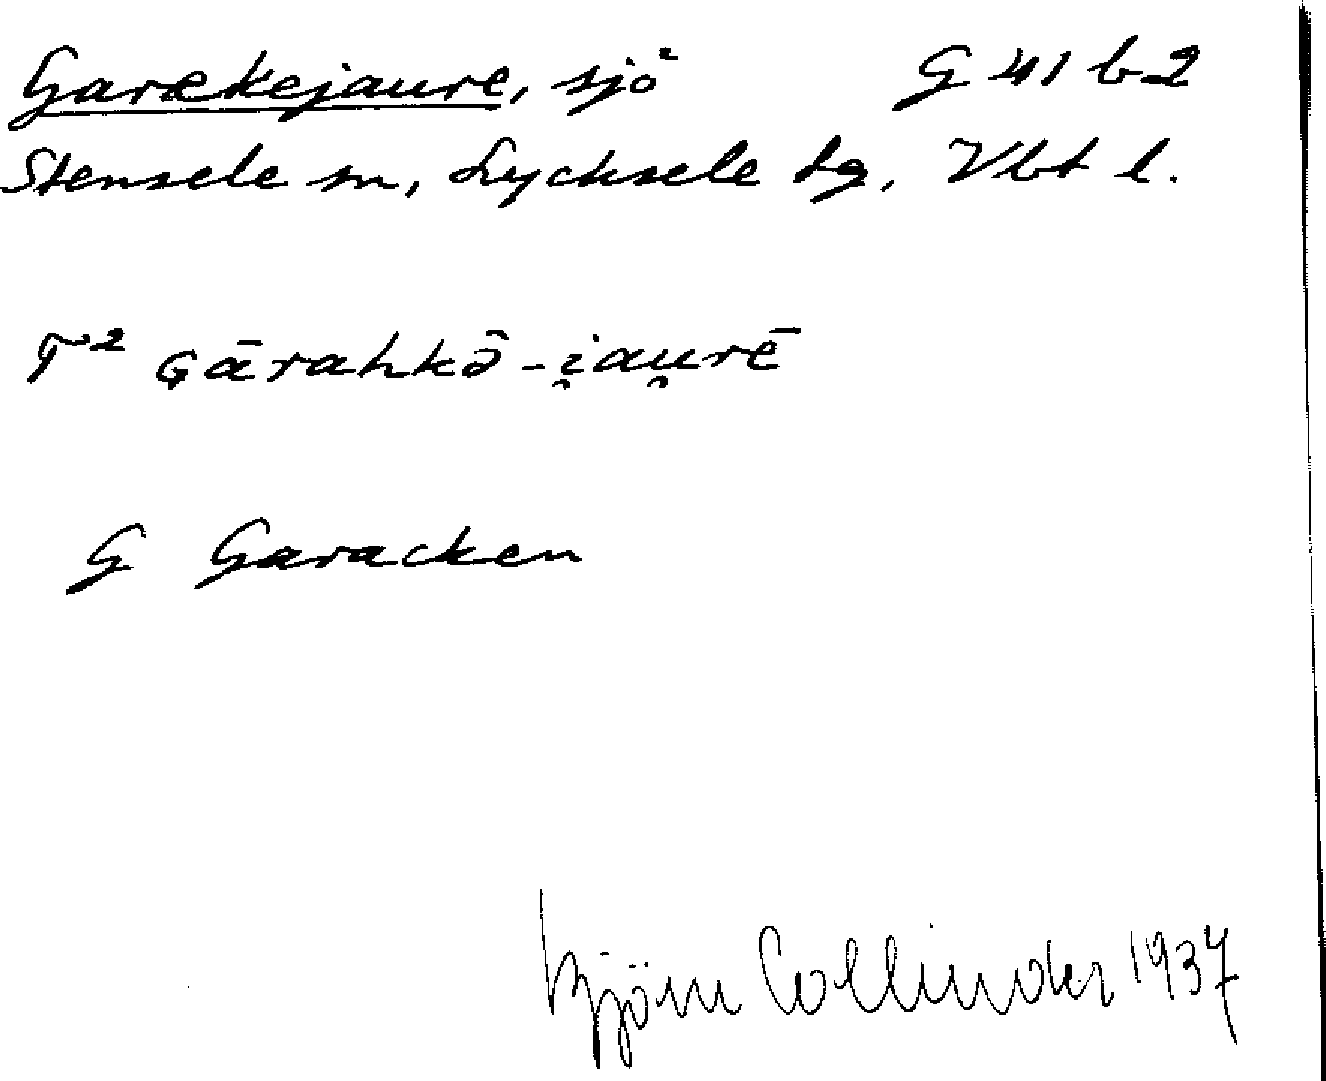 Garækejaure, sjö G 41 b 2
Stensele sn, Lycksele lg, Vbt l.
T² Gārahkə̄-i̯au̯rē
G Garacken
Björn Collinder 1937